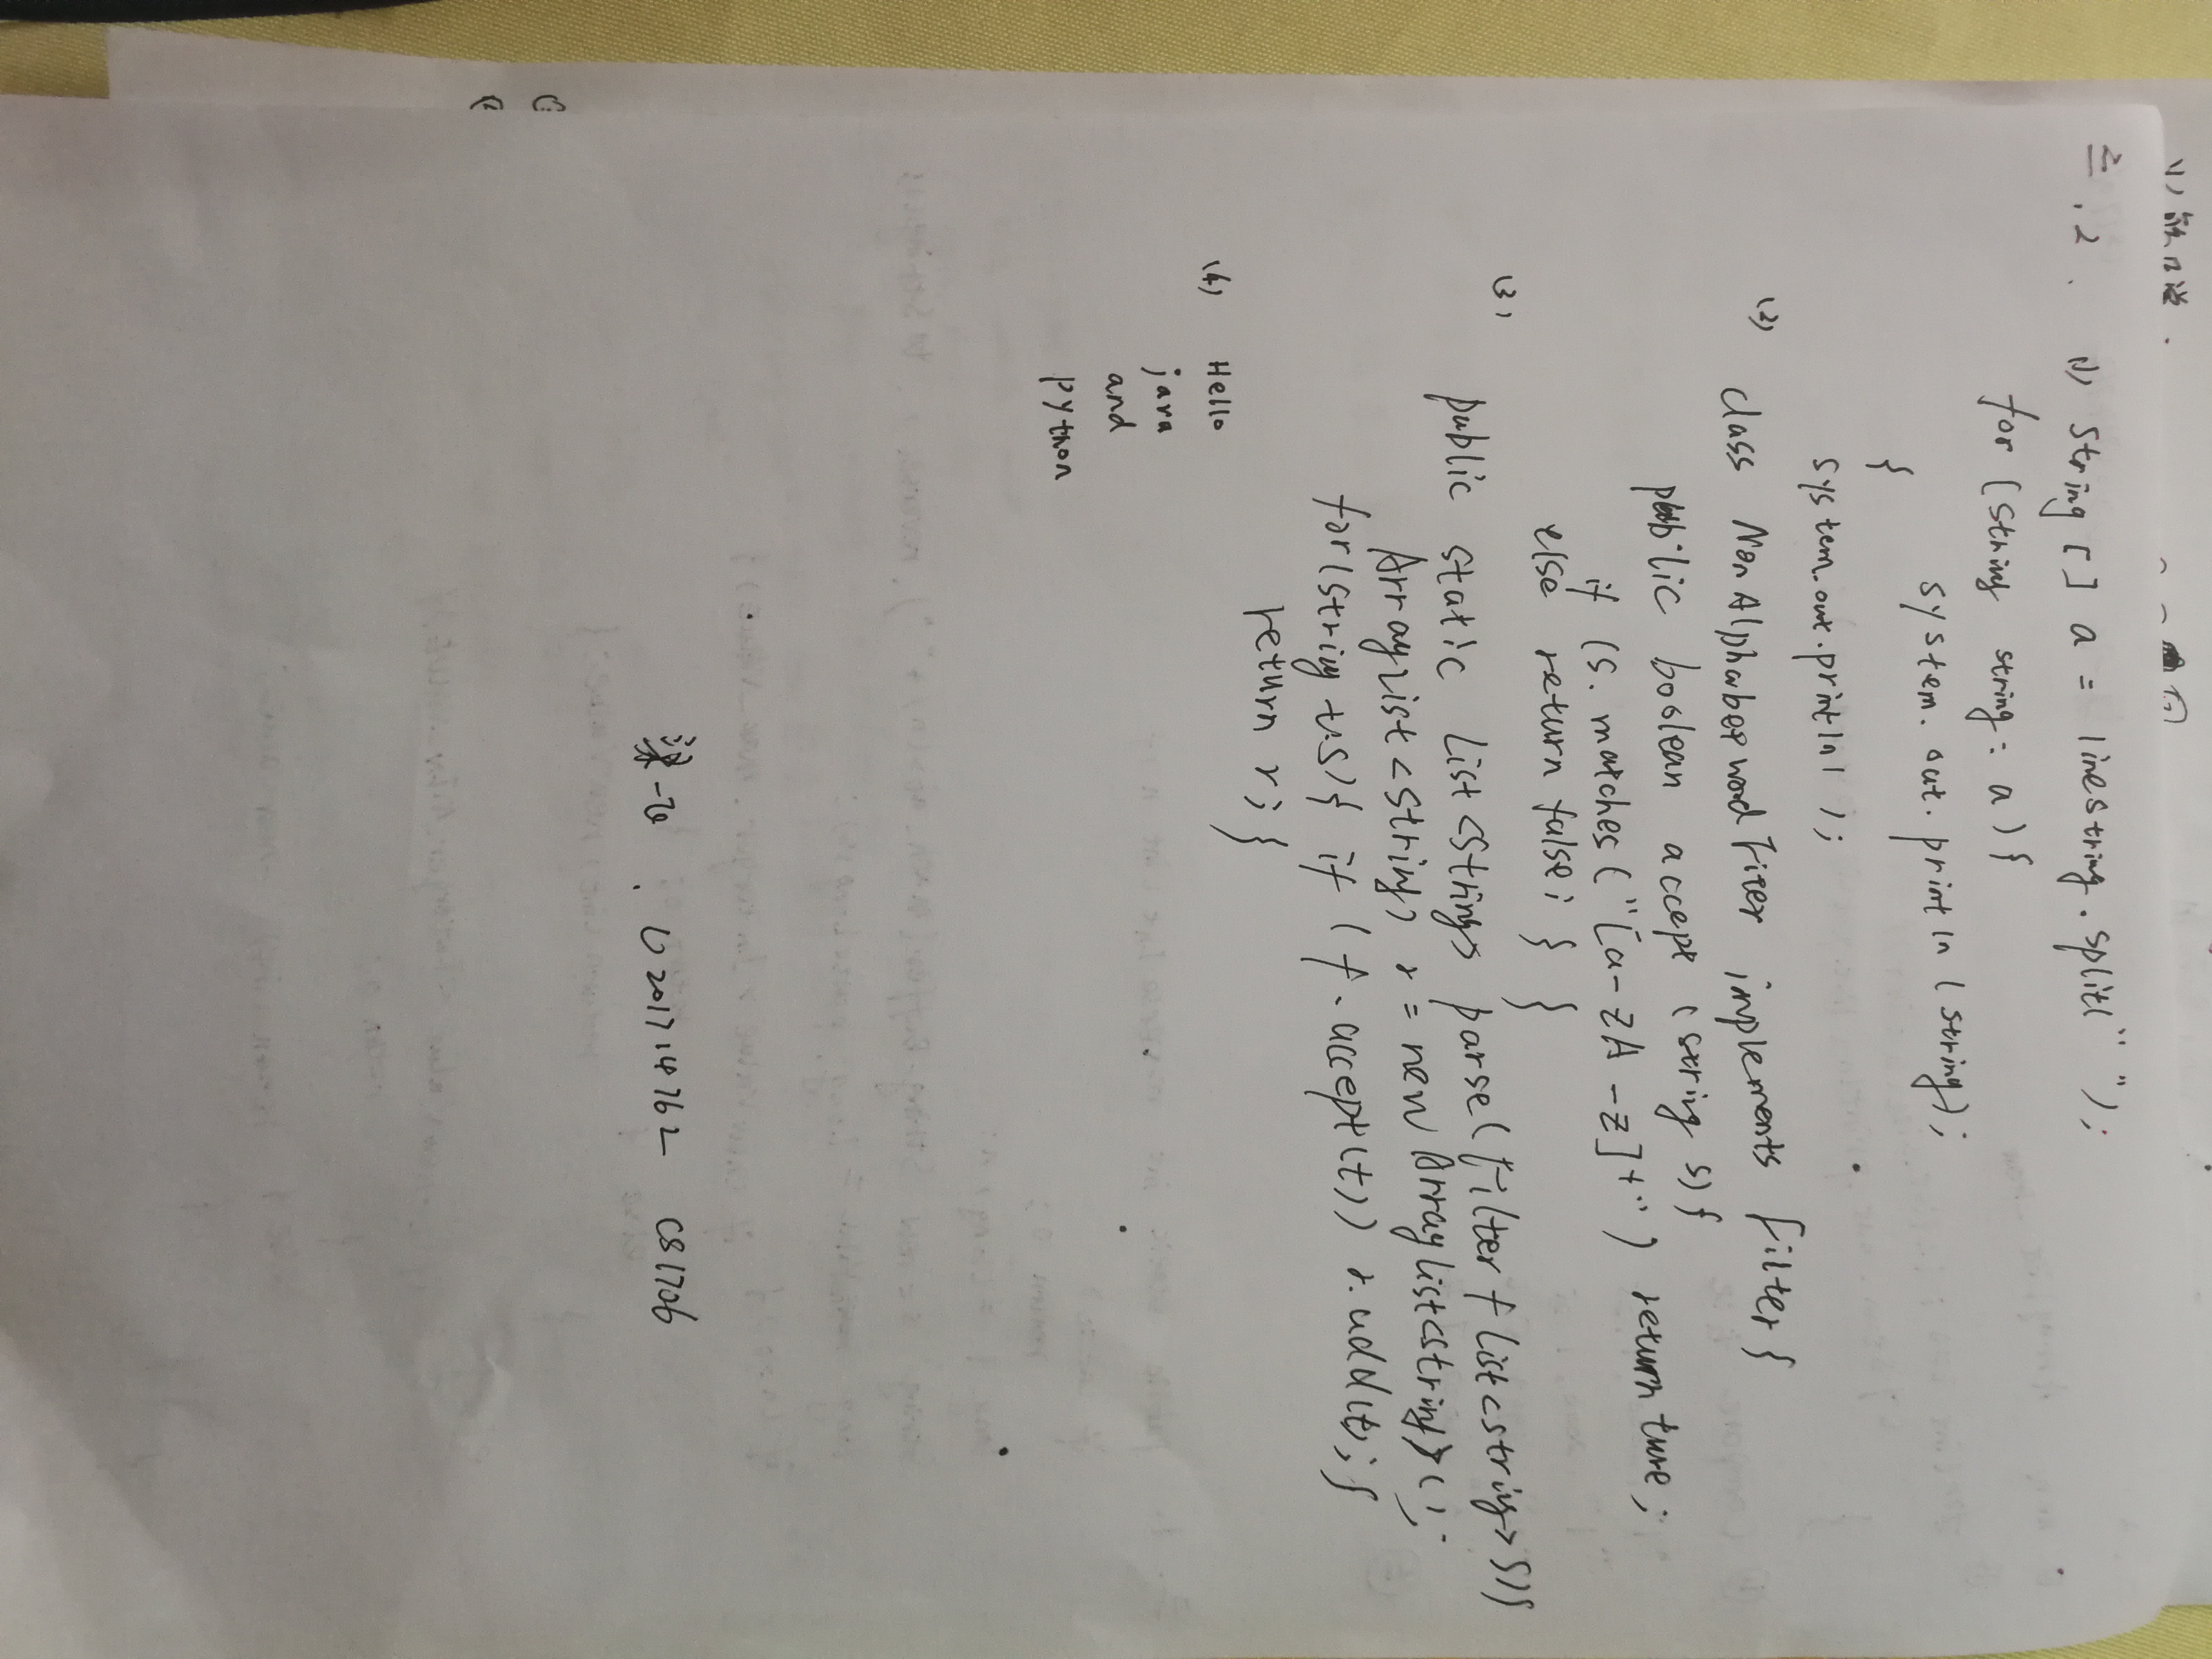 三.2. (1) String [] a = linestring.split(" ");
for (string string: a) {
system.out.println(string);
}
system.out.println();
(2) class NonAlphabopwodFiter implements filter{
public boolean accept (string s){
if (s.matches("[a-zA-Z]+") return ture;
else return false; } }
(3) public static List<String> parse(filter f list<string>s){
ArrayList<String> r = new Arraylist<string>();
for(string t:s){ if (f.accept(t)) r.add(t);}
return r; }
(4) Hello
java
and
python
梁一加. U201714762 CS1706